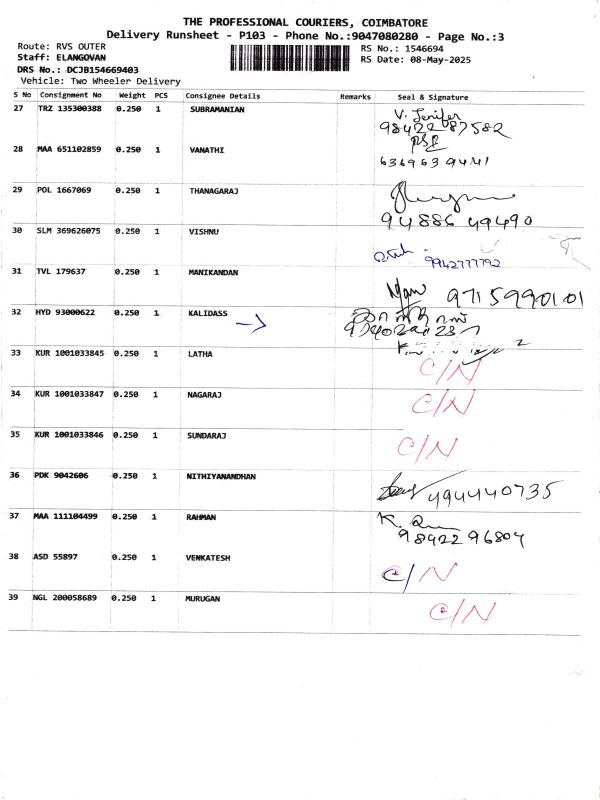 THE PROFESSIONAL COURIERS, COIMBATORE
Delivery Runsheet - P103 - Phone No.:9047080280 - Page No.:3
Route: RVS OUTER RS No.: 1546694
Staff: ELANGOVAN RS Date: 08-May-2025
DRS No.: DCJB154669403
Vehicle: Two Wheeler Delivery
S No Consignment No Weight PCS Consignee Details Remarks Seal & Signature
27 TRZ 135300388 0.250 1 SUBRAMANIAN V. Jenifer
98422 87582
28 MAA 651102859 0.250 1 VANATHI
6369639441
29 POL 1667069 0.250 1 THANAGARAJ
94886 49490
30 SLM 369626075 0.250 1 VISHNU
9942777792
31 TVL 179637 0.250 1 MANIKANDAN
9715990101
32 HYD 93000622 0.250 1 KALIDASS
33 KUR 1001033845 0.250 1 LATHA
C/N
34 KUR 1001033847 0.250 1 NAGARAJ C/N
35 KUR 1001033846 0.250 1 SUNDARAJ C/N
36 PDK 9042606 0.250 1 NITHIYANANDHAN
37 MAA 111104499 0.250 1 RAHMAN
98422 96804
38 ASD 55897 0.250 1 VENKATESH C/N
39 NGL 200058689 0.250 1 MURUGAN C/N